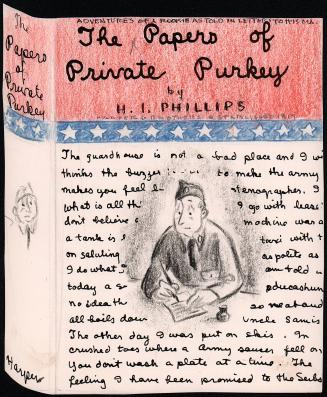 The
Papers
of
Private
Purkey
Harper
ADVENTURES OF A ROOKIE AS TOLD IN LETTERS TO HIS MA
The Papers of
Private Purkey
by
H. I. PHILLIPS
The guardhouse is not a bad place and I
thinks the to make the army
makes you feel stenographer. I
what is all th I go with
don't believe machine was a
a tank is taxi with
on saluting as polite as
I do what I am told
today a
no idea th so neat and
all boils down Uncle Sam is
The other day I was put on skis. In
crushed toes where a army saucer fell on
You don't wash a plate at a time. The
feeling I have been promised to the Subs